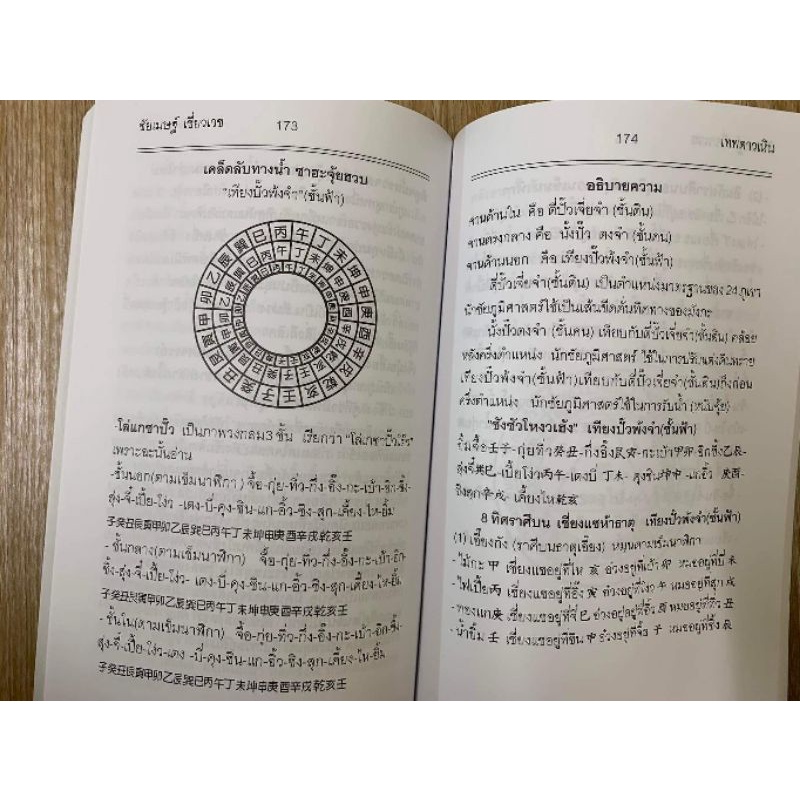 ชัยเมษฐ์ เชี่ยวเวช 173
เคล็ดลับทางน้ำ ซาฮะจุ้ยฮวบ
"เทียงปั๊วพ้งจำ"(ชั้นฟ้า)
-โล่แกซาปั๊ว เป็นภาพวงกลม3 ชั้น เรียกว่า "โล่แกซาปั๊วโร้ว"
เพราะฉะนั้นอ่าน
-ชั้นนอก(ตามเข็มนาฬิกา ) จื้อ-กุ่ย-ทิ่ว-กึ่ง-อิ๊ง-กะ-เบ้า-อิก-ซิ้ง-
สุ่ง-จี๋-เปี้ย-โง่ว -เตง-บี่-คุง-ซิน-แก-อิ้ว-ซิง-สุก-เคี้ยง-ไห-ยิ้ม
子癸丑艮寅甲卯乙辰巽巳丙午丁未坤申庚酉辛戌乾亥壬
- ชั้นกลาง(ตามเข็มนาฬิกา) จื้อ-กุ่ย-ทิ่ว-กึ่ง-อิ๊ง-กะ-เบ้า-อิก-
ซิ้ง-สุ่ง-จี๋-เปี้ย-โง่ว- เตง-บี่-คุง-ซิน-แก-อิ้ว-ซิง-สุก-เคี้ยง-ไห-ยิ้ม
子癸丑艮寅甲卯乙辰巽巳丙午丁未坤申庚酉辛戌乾亥壬
- ชั้นใน(ตามเข็มนาฬิกา) จื้อ-กุ่ย-ทิ่ว-กึ่ง-อิ๊ง-กะ-เบ้า-อิก-ซิ้ง-
สุ่ง-จี๋-เปี้ย-โง่ว-เตง -บี่-คุง-ซิน-แก-อิ้ว-ซิง-สุก-เคี้ยง-ไห-ยิ้ม
子癸丑艮寅甲卯乙辰巽巳丙午丁未坤申庚酉辛戌乾亥壬
174 เทพดาวเหิน
อธิบายความ
จานด้านใน คือ ตี่ปั๊วเจี่ยจำ (ชั้นดิน)
จานตรงกลาง คือ นั้งปั๊ว ตงจำ (ชั้นคน)
จานด้านนอก คือ เทียงปั๊วพ้งจำ (ชั้นฟ้า)
ตี่ปั๊วเจี่ยจำ(ชั้นดิน) เป็นตำแหน่งมาตรฐานของ 24 ภูเขา
นักชัยภูมิศาสตร์ใช้เป็นเส้นขีดคั่นทิศทางของมังกร
นั้งปั๊วตงจำ (ชั้นคน) เทียบกับตี่ปั๊วเจี่ยจำ(ชั้นดิน) คล้อย
หลังครึ่งตำแหน่ง นักชัยภูมิศาสตร์ ใช้ในการปรับแต่งดินทราย
เทียงปั๊วพ้งจำ(ชั้นฟ้า)เทียบกับตี่ปั๊วเจี่ยจำ(ชั้นดิน)ถึงก่อน
ครึ่งตำแหน่ง นักชัยภูมิศาสตร์ใช้ในการรับน้ำ (หนับจุ้ย)
"ซังซัวโหงวเฮ้ง" เทียงปั๊วพ้งจำ(ชั้นฟ้า)
ยิ้มจื้อ壬子- กุ่ยทิ่ว癸丑-กึ่งอิ๊ง艮寅-กะเบ้า甲卯-อิกซิ้ง乙辰-
สุ่งจี๋巽巳-เปี้ยโง่ว丙午-เตงบี่ 丁未- คุงซิน坤申-แกอิ้ว 庚酉-
ซิงสุก辛戌-เคี้ยงไห乾亥
8 ทิศราศีบน เชี่ยงแซห้าธาตุ เทียงปั๊วพ้งจำ(ชั้นฟ้า)
(1) เชี้ยงกัง (ราศีบนธาตุเชี้ยง) หมุนตามเข็มนาฬิกา
- ไม้กะ 甲 เชี่ยงแซอยู่ที่ไห 亥 อ่วงอยู่ที่เบ้า 卯 หมออยู่ที่บี่ 未
- ไฟเปี้ย丙 เชี่ยงแซอยู่ที่อิ๊ง 寅 อ่วงอยู่ที่โง่ว 午 หมออยู่ที่สุก 戌
- ทองแก庚 เชี่ยงแซอยู่ที่จี๋ 巳 อ่วงอยู่อยู่ที่อิ้ว 酉 หมออยู่ที่ทิ่ว 丑
- น้ำยิ้ม 壬 เชี่ยงแซอยู่ที่ซิน 申 อ่วงอยู่ที่จื้อ 子 หมออยู่ที่ซิ้ง 辰